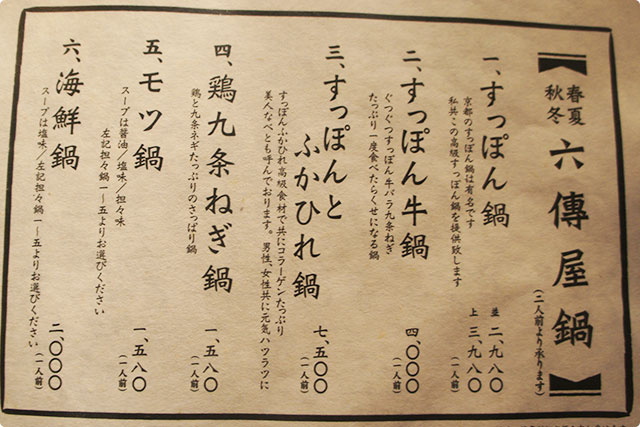 春夏
秋冬
六傳屋鍋
（二人前より承ります）
一、すっぽん鍋
京都のすっぽん鍋は有名です
私共この高級すっぽん鍋を提供致します
並 二、九八〇
上 三、九八〇
（一人前）
二、すっぽん牛鍋
ぐつぐつすっぽん牛バラ九条ねぎ
たっぷり一度食べたらくせになる鍋
四、〇〇〇
（一人前）
三、すっぽんと
ふかひれ鍋
すっぽんふかひれ高級食材で共にコラーゲンたっぷり
美人なべとも呼んでおります。男性、女性共に元気ハツラツに
七、五〇〇
（一人前）
四、鶏九条ねぎ鍋
鶏と九条ネギたっぷりのさっぱり鍋
一、五八〇
（一人前）
五、モツ鍋
スープは醤油／塩味／担々味
左記担々鍋一～五よりお選びください
一、五八〇
（一人前）
六、海鮮鍋
スープは塩味／左記担々鍋一～五よりお選びください
二、〇〇〇
（一人前）